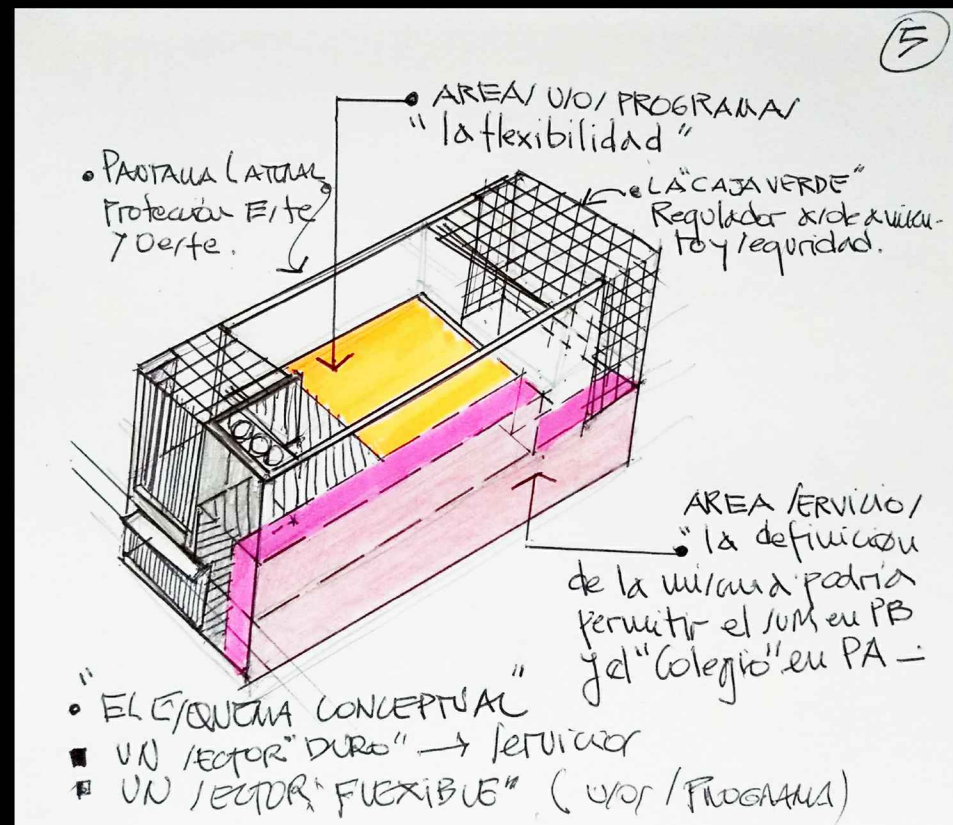 5
AREAS USOS PROGRAMAS
"la flexibilidad"
• PANTALLA LATERAL
Protección Este
y Oeste.
• LA "CAJA VERDE"
Regulador asoleamien-
to y seguridad.
AREA SERVICIOS
• "la definición
de la misma podría
permitir el SUM en PB
y el "Colegio" en PA —
• "EL ESQUEMA CONCEPTUAL"
■ UN SECTOR "DURO" → servicios
■ UN SECTOR "FLEXIBLE" (USOS / PROGRAMA)